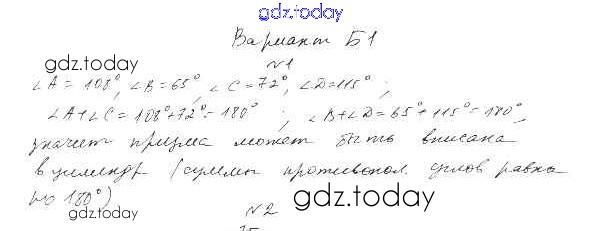 gdz.today
Вариант Б1
gdz.today
№1
∠A = 108°, ∠B = 65°, ∠C = 72°, ∠D = 115° ;
∠A + ∠C = 108° + 72° = 180° ; ∠B + ∠D = 65° + 115° = 180°,
значит призма может быть вписана
в цилиндр (суммы противопол. углов равны
по 180°)
gdz.today
gdz.today
№2